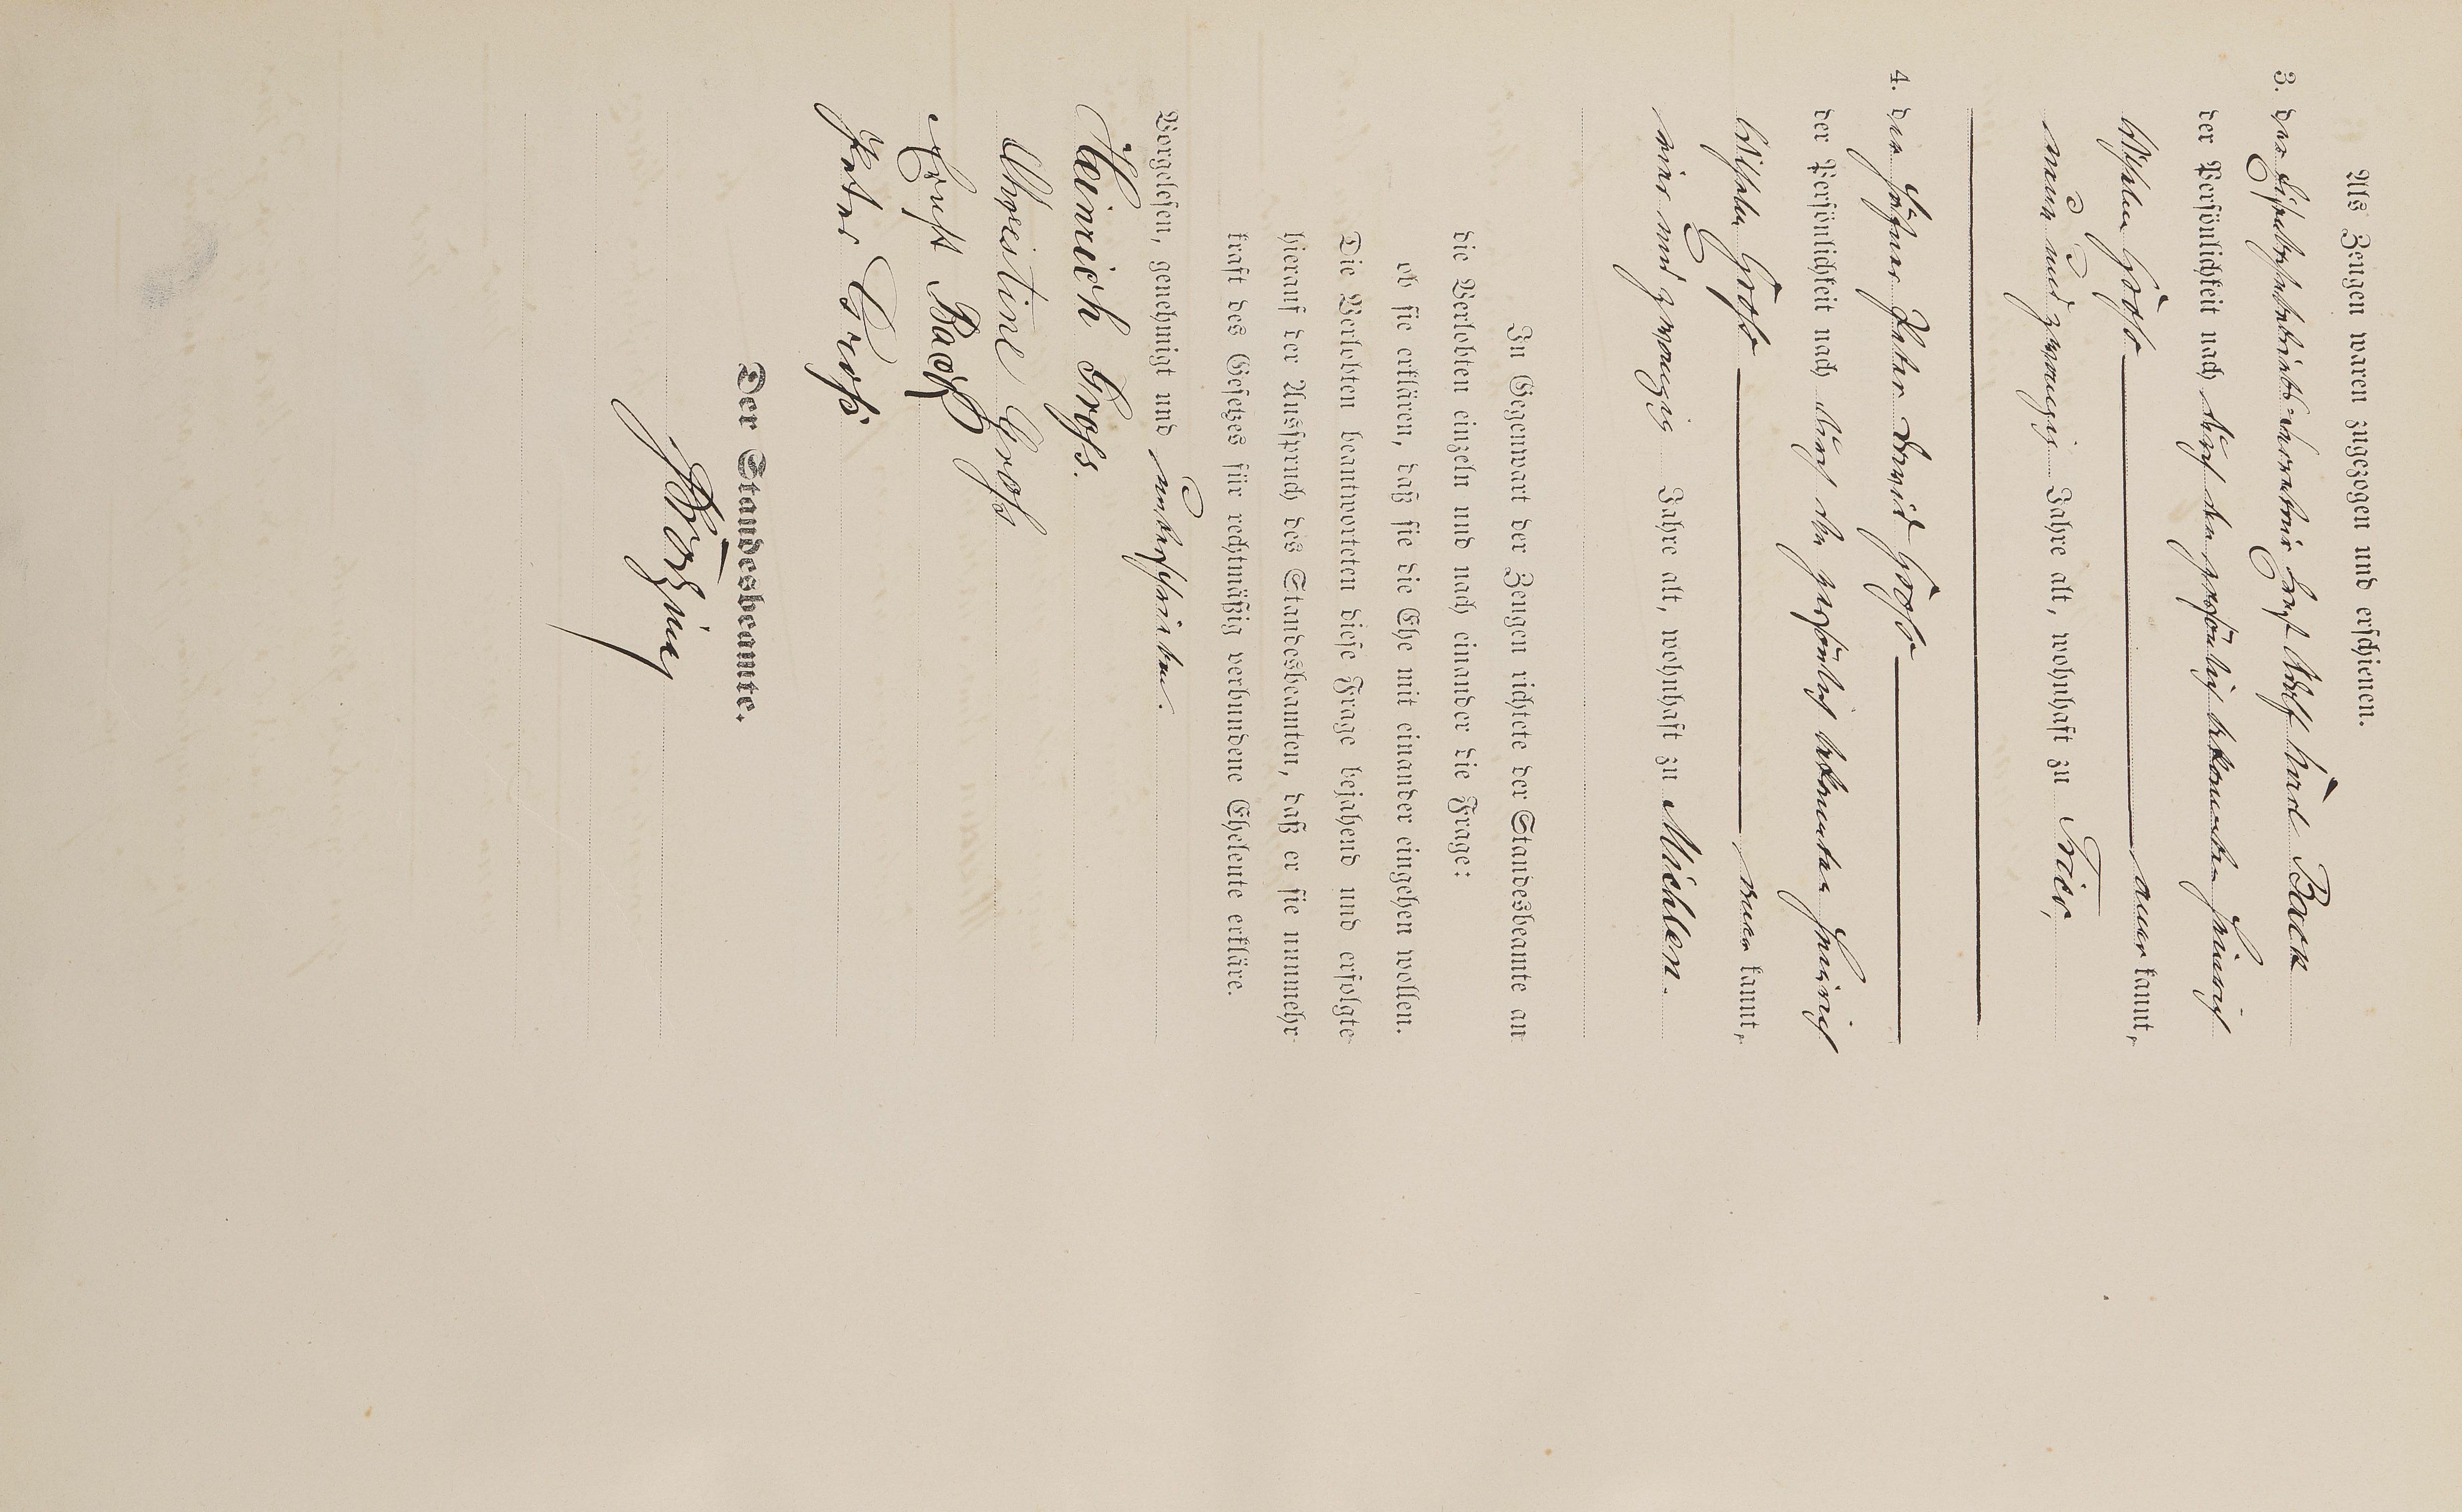 Als Zeugen waren zugezogen und erschienen:
3. der Eisenbahnbetriebssekretair Ernst Adolf Karl Back
der Persönlichkeit nach durch den persönlich bekannten Heinrich
Wilhelm Groß anerkannt,
neun und zwanzig Jahre alt, wohnhaft zu Trier,
4. der Peter David Groß
der Persönlichkeit nach durch den persönlich bekannten Heinrich
Wilhelm Groß anerkannt,
vier und zwanzig Jahre alt, wohnhaft zu Michlen.
In Gegenwart der Zeugen richtete der Standesbeamte an
die Verlobten einzeln und nach einander die Frage:
ob sie erklären, daß sie die Ehe mit einander eingehen wollen.
Die Verlobten beantworteten diese Frage bejahend und erfolgte
hierauf der Ausspruch des Standesbeamten, daß er sie nunmehr
kraft des Gesetzes für rechtmäßig verbundene Eheleute erkläre.
Vorgelesen, genehmigt und unterschrieben.
Heinrich Groß.
Christine Groß
Ernst Back
Peter Groß
Der Standesbeamte.